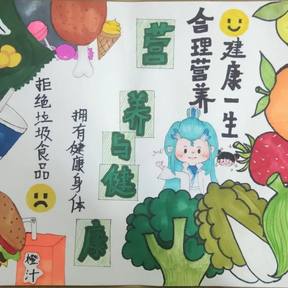 合理营养
健康一生
营养与健康
拒绝垃圾食品
拥有健康身体
橙汁